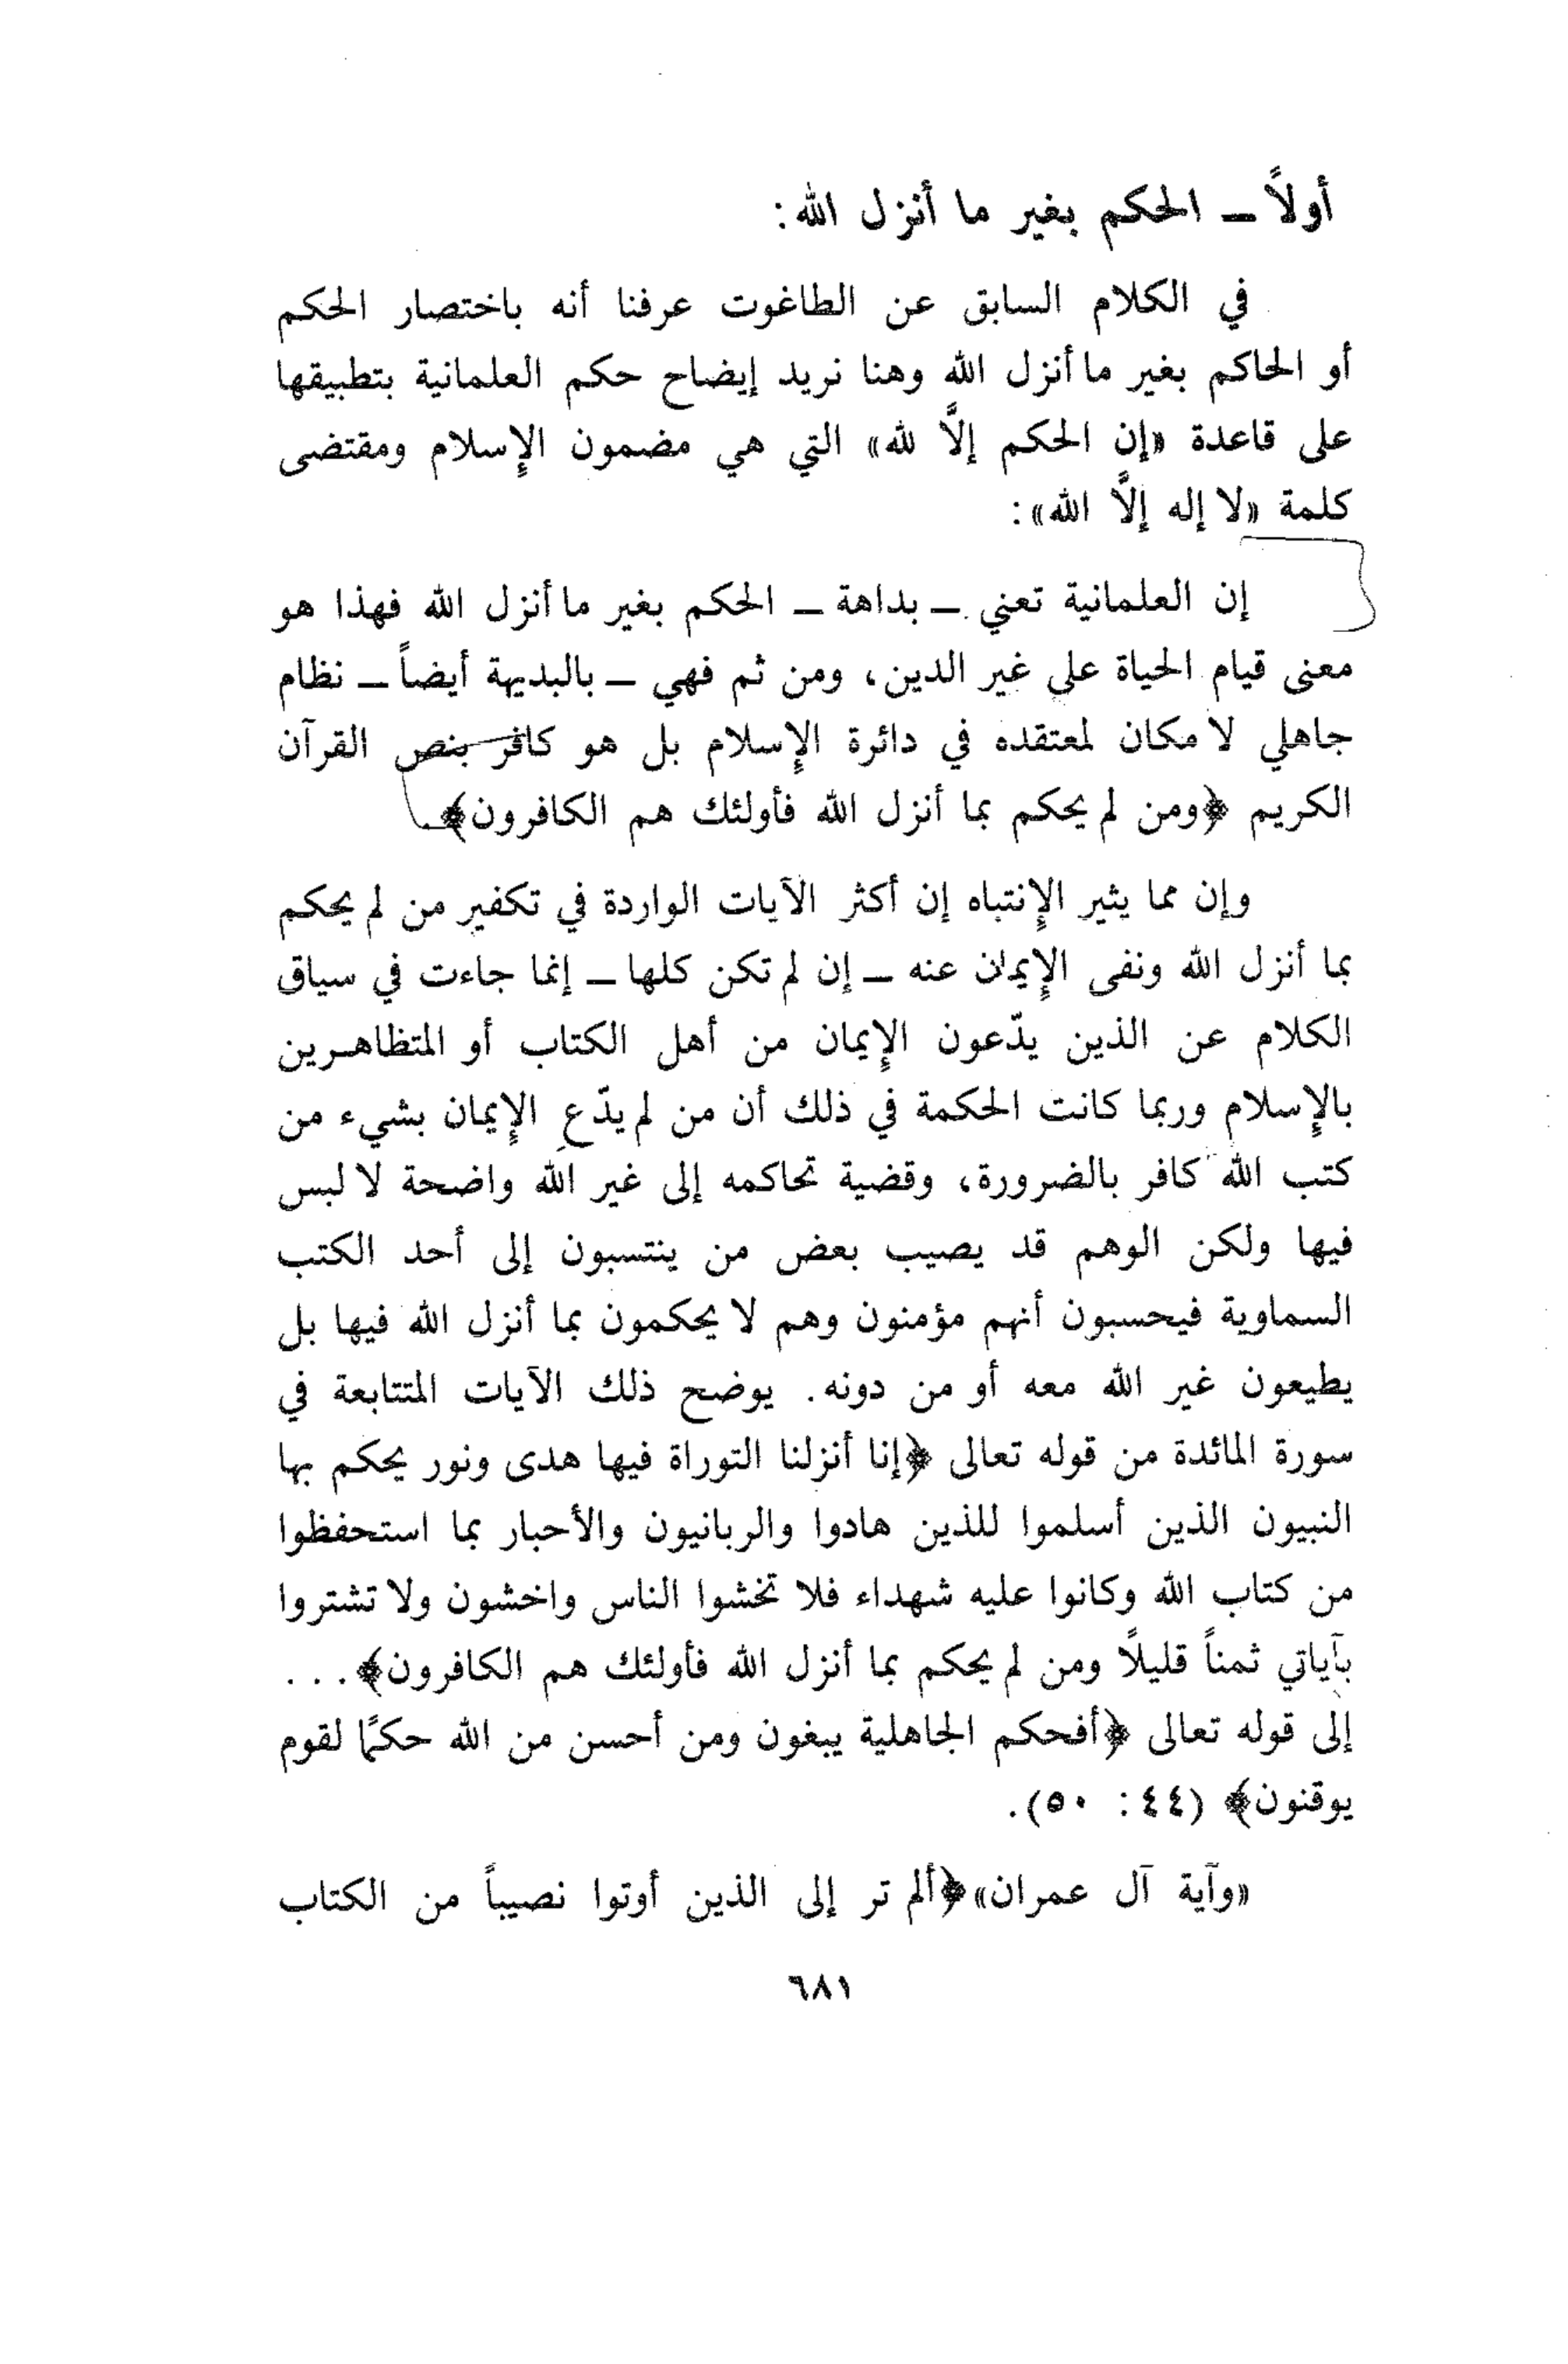 أولاً ــ الحكم بغير ما أنزل الله:
في الكلام السابق عن الطاغوت عرفنا أنه باختصار الحكم
أو الحاكم بغير ما أنزل الله وهنا نريد إيضاح حكم العلمانية بتطبيقها
على قاعدة «إن الحكم إلاَّ لله» التي هي مضمون الإسلام ومقتضى
كلمة «لا إله إلاَّ الله»:
إن العلمانية تعني ــ بداهة ــ الحكم بغير ما أنزل الله فهذا هو
معنى قيام الحياة على غير الدين، ومن ثم فهي ــ بالبديهة أيضاً ــ نظام
جاهلي لا مكان لمعتقده في دائرة الإسلام بل هو كافر بنص القرآن
الكريم ﴿ومن لم يحكم بما أنزل الله فأولئك هم الكافرون﴾.
وإن مما يثير الإنتباه إن أكثر الآيات الواردة في تكفير من لم يحكم
بما أنزل الله ونفى الإيمان عنه ــ إن لم تكن كلها ــ إنما جاءت في سياق
الكلام عن الذين يدّعون الإيمان من أهل الكتاب أو المتظاهرين
بالإسلام وربما كانت الحكمة في ذلك أن من لم يدّعِ الإيمان بشيء من
كتب الله كافر بالضرورة، وقضية تحاكمه إلى غير الله واضحة لا لبس
فيها ولكن الوهم قد يصيب بعض من ينتسبون إلى أحد الكتب
السماوية فيحسبون أنهم مؤمنون وهم لا يحكمون بما أنزل الله فيها بل
يطيعون غير الله معه أو من دونه. يوضح ذلك الآيات المتتابعة في
سورة المائدة من قوله تعالى ﴿إنا أنزلنا التوراة فيها هدى ونور يحكم بها
النبيون الذين أسلموا للذين هادوا والربانيون والأحبار بما استحفظوا
من كتاب الله وكانوا عليه شهداء فلا تخشوا الناس واخشون ولا تشتروا
بآياتي ثمناً قليلاً ومن لم يحكم بما أنزل الله فأولئك هم الكافرون﴾...
إلى قوله تعالى ﴿أفحكم الجاهلية يبغون ومن أحسن من الله حكمًا لقوم
يوقنون﴾ (٤٤: ٥٠).
«وآية آل عمران» ﴿ألم تر إلى الذين أوتوا نصيباً من الكتاب
٦٨١